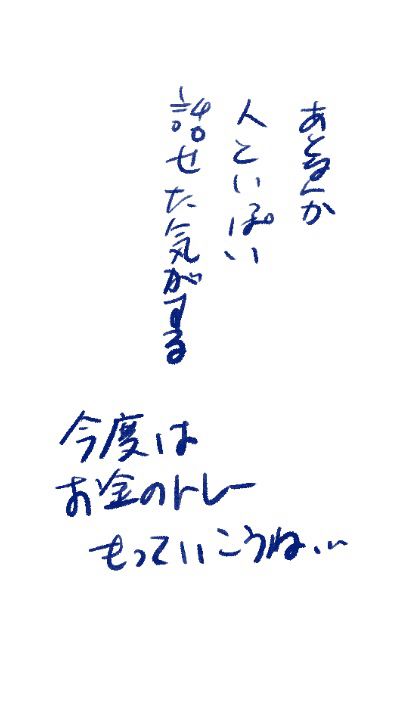 あとなんか
人といっぱい
話せた気がする
今度は
お金のトレー
もっていこうね、、、